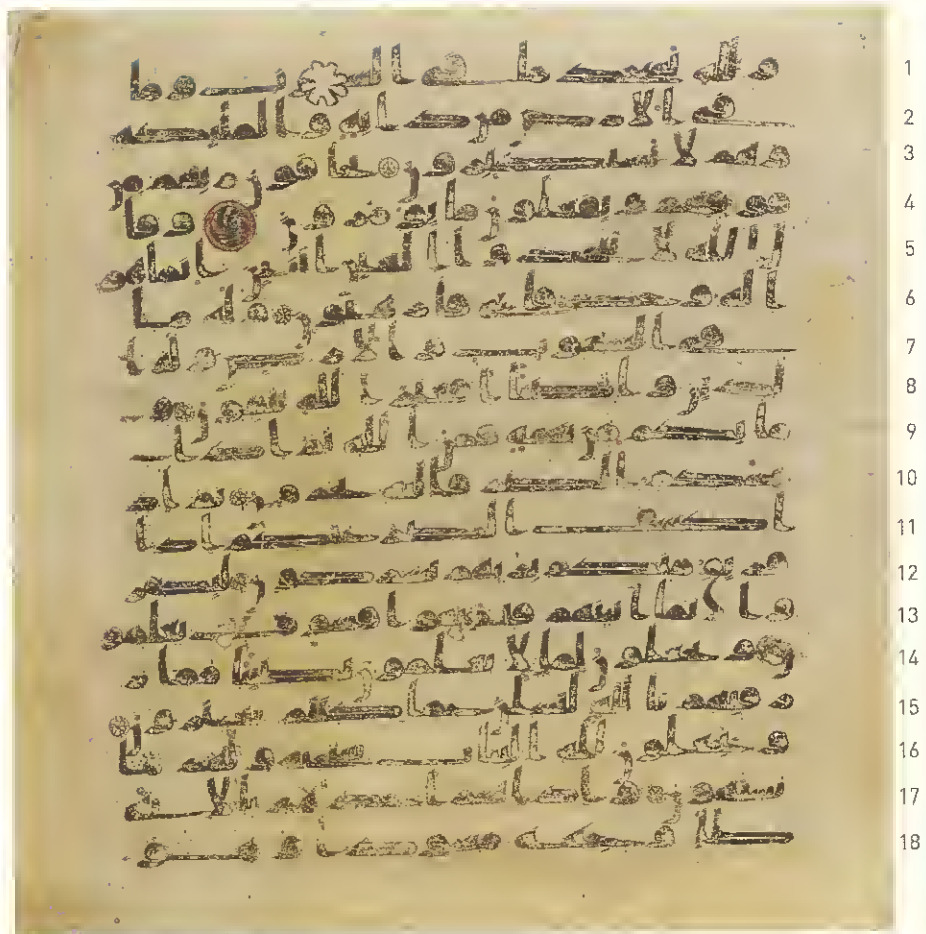 1 ولله يسجد ما في السموت وما
2 في الارض من دابه والمليكه
3 وهم لا يستكبرون يخافون ربهم من
4 فوقهم ويفعلون ما يومرون وقا
5 ل الله لا تتخذوا الهين اثنين انما هو
6 اله وحد فايي فارهبون وله ما
7 في السموت والارض وله ا
8 لدين واصبا افغير الله تتقون و
9 ما بكم من نعمه فمن الله ثم اذا
10 مسكم الضر فاليه تجرون ثم اذ
11 ا كشف الضر عنكم اذا
12 فريق منكم بربهم يشركون ليكفر
13 وا بما اتينهم فتمتعوا فسوف تعلمو
14 ن ويجعلون لما لا يعلمون نصيبا مما ر
15 زقنهم تالله لتسلن عما كنتم تفترون
16 ويجعلون لله البنت سبحنه ولهم ما
17 يشتهون واذا بشر احدهم بالانثى
18 ظل وجهه مسودا وهو كظيم